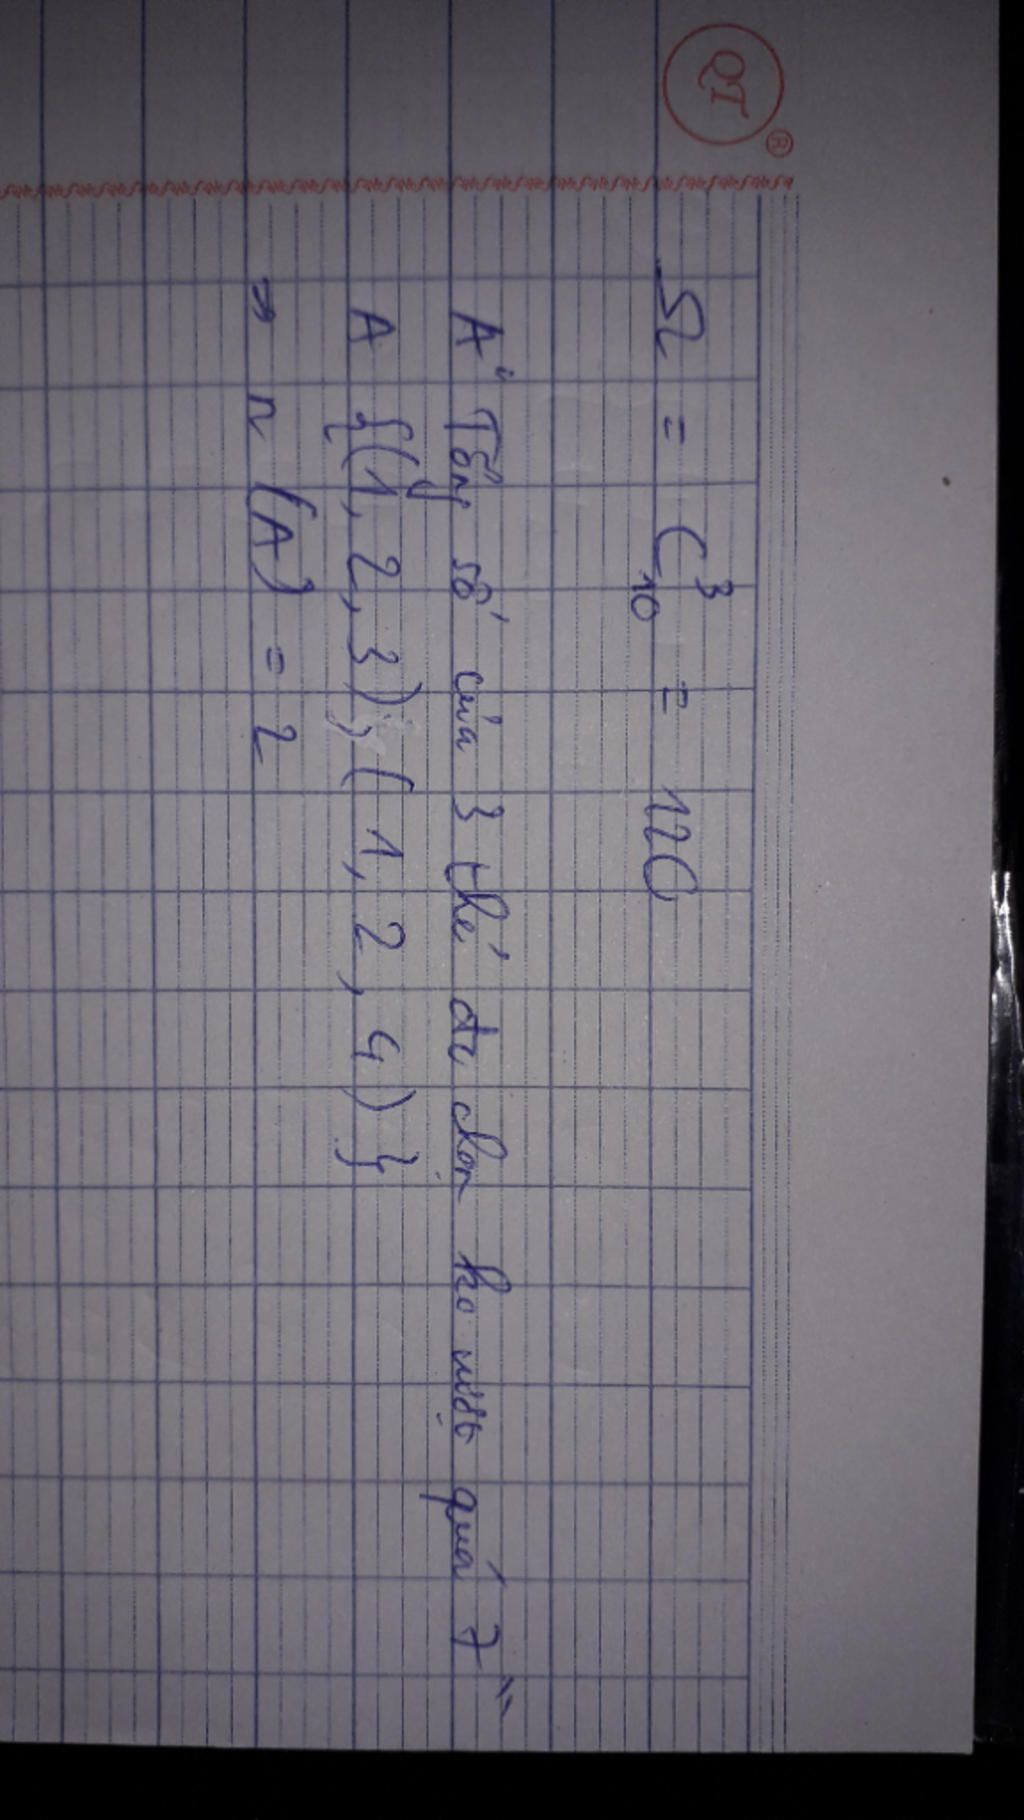 QT ®
Ω = C³₁₀ = 120
A "Tổng số của 3 thẻ đc chọn ko vượt quá 7"
A {(1, 2, 3); (1, 2, 4)}
=> n (A) = 2